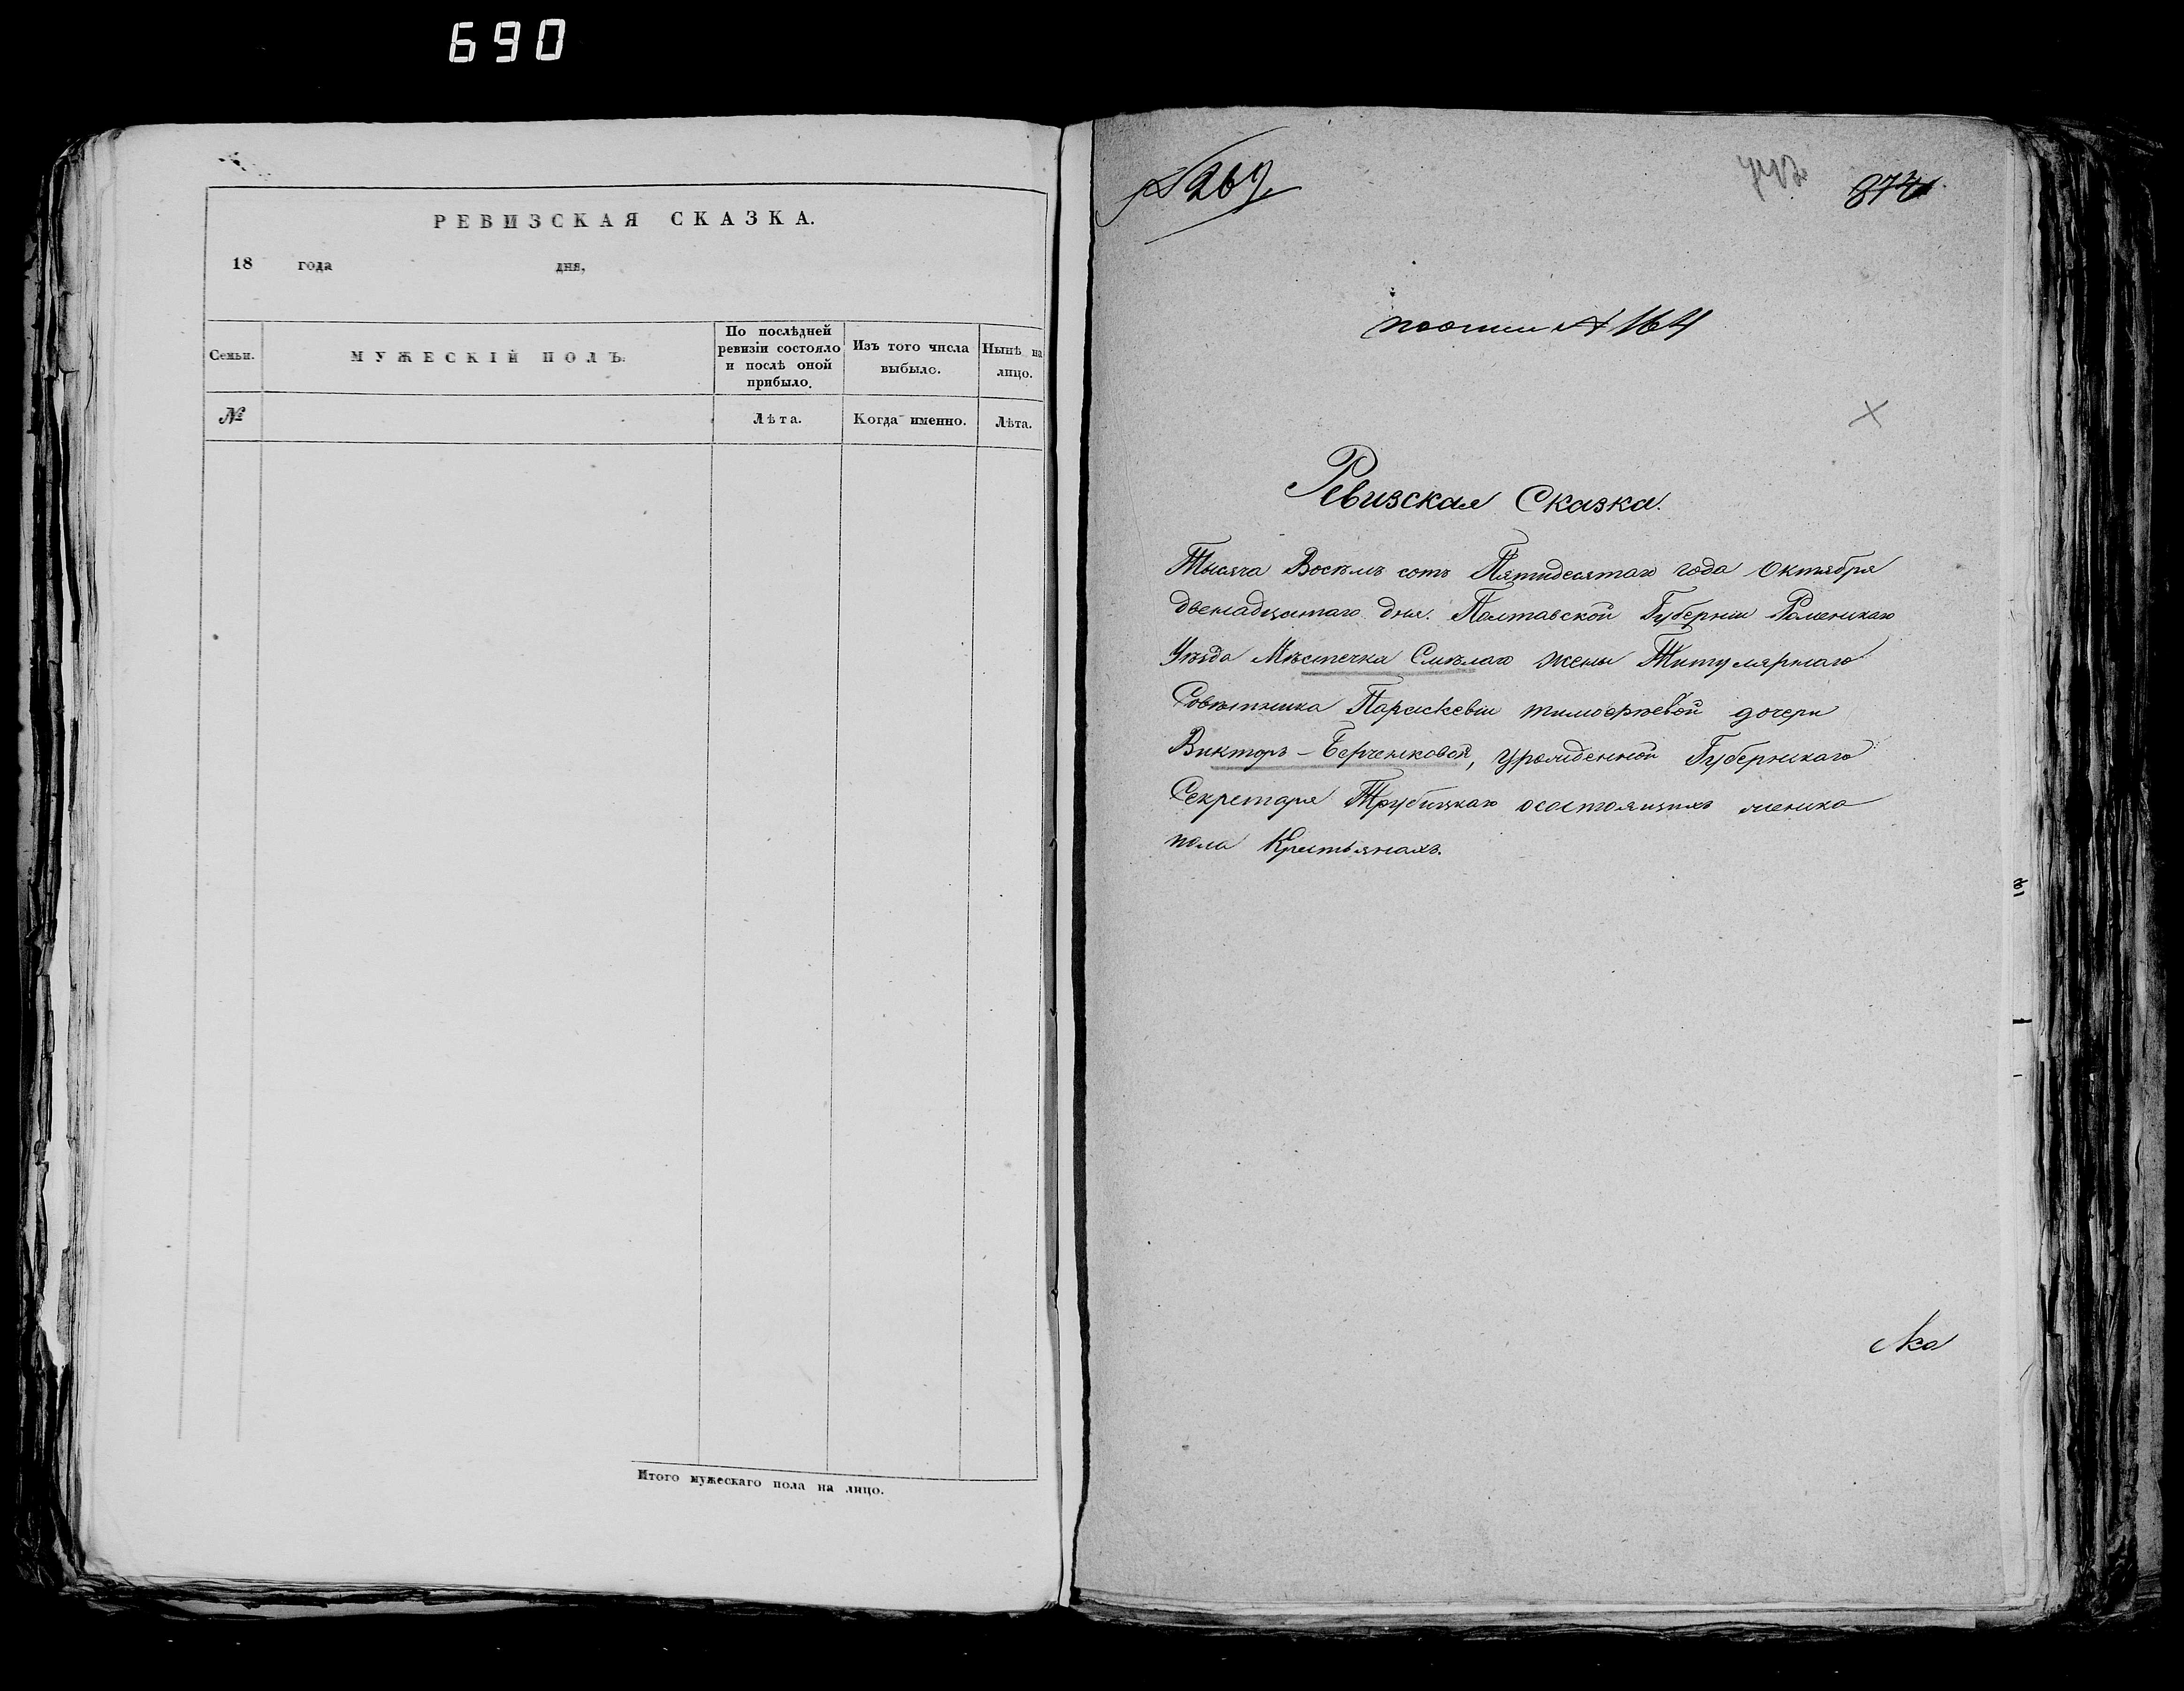 690
РЕВИЗСКАЯ СКАЗКА.
18 года дня,
Семьи.
МУЖЕСКІЙ ПОЛЪ.
По послѣдней
ревизіи состояло
и послѣ оной
прибыло.
Изъ того числа
выбыло.
Нынѣ на
лицо.
№
Лѣта.
Когда именно.
Лѣта.
Итого мужескаго пола на лицо.
№ 269
874
№ 164
Ревизская Сказка.
Тысяча Восѣмъ сотъ Пятидесятаго года Октября
двенадцатаго дня. Полтавской Губерніи Роменскаго
Уѣзда Мѣстечка Смѣлаго жены Титулярнаго
Совѣтника Параскевіи Тимофѣевой дочери
Викторъ-Берченковой, урожденной Губернскаго
Секретаря Трубицкаго осостоящихъ женска
пола Крестьянахъ.